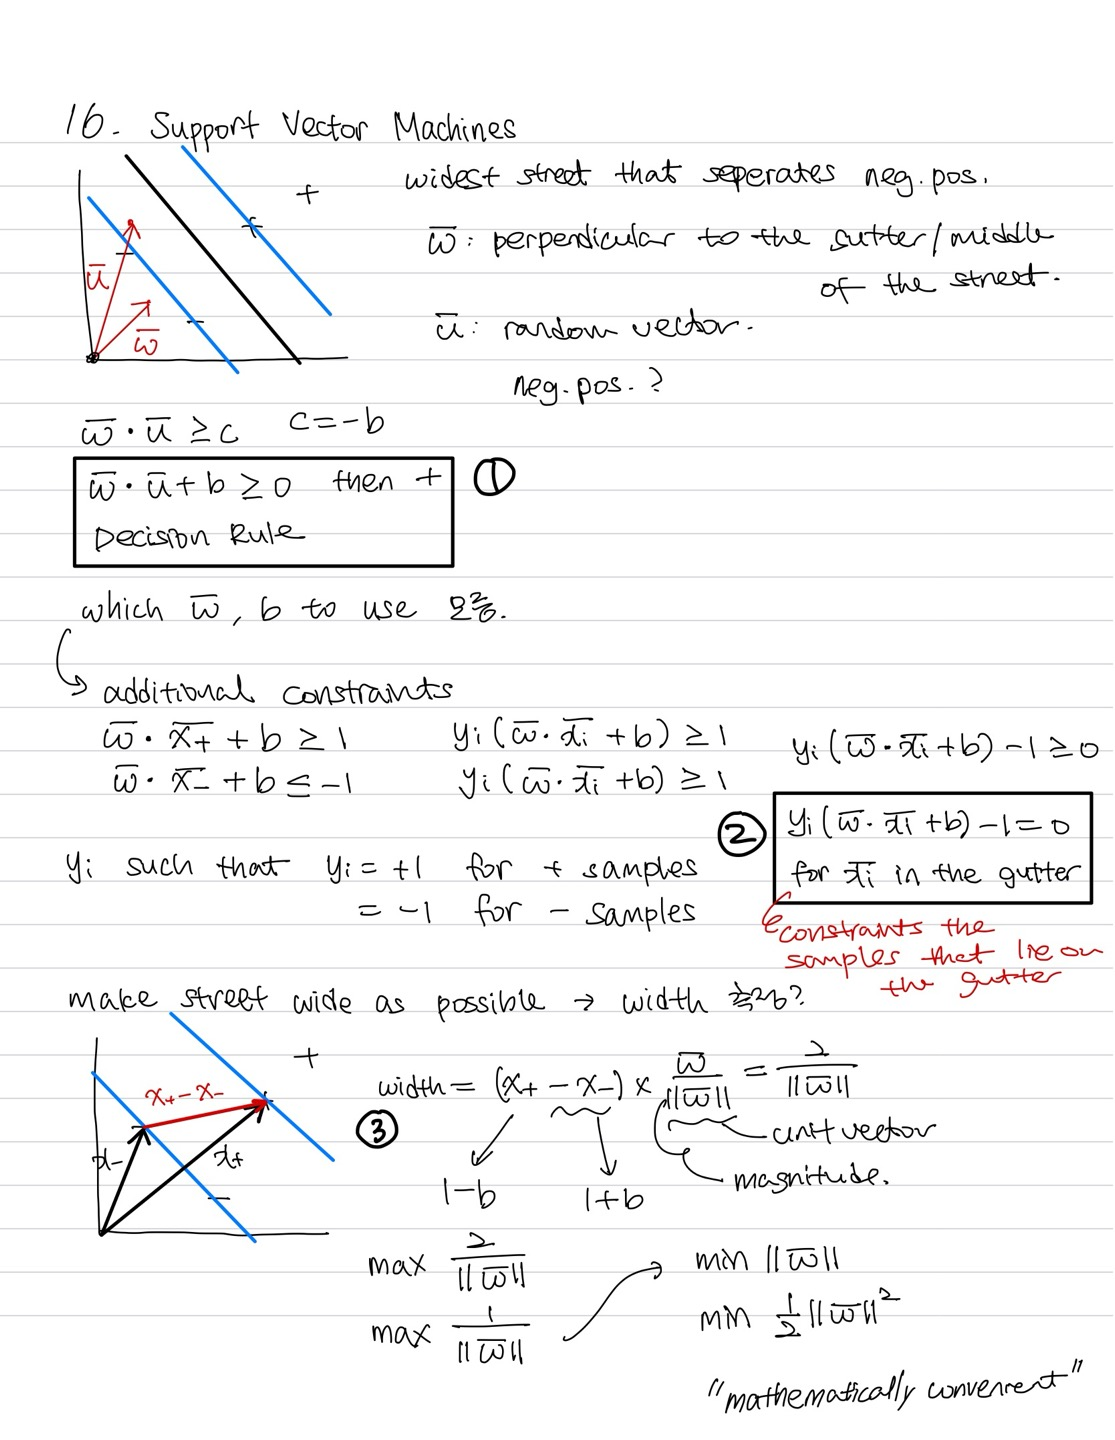 16. Support Vector Machines
widest street that seperates neg. pos.
+
w̅: perpendicular to the gutter/middle
of the street.
u̅
w̅
u̅: random vector.
neg. pos. ?
w̅ · u̅ ≥ c   c = -b
w̅ · u̅ + b ≥ 0   then +   ①
Decision Rule
which w̅, b to use 모름.
additional constraints
w̅ · x̅₊ + b ≥ 1   yi (w̅ · x̅i + b) ≥ 1   yi (w̅ · x̅i + b) - 1 ≥ 0
w̅ · x̅₋ + b ≤ -1   yi (w̅ · x̅i + b) ≥ 1
② yi (w̅ · x̅i + b) - 1 = 0
for x̅i in the gutter
yi such that yi = +1 for + samples
= -1 for - samples
constraints the
samples that lie on
the gutter
make street wide as possible → width
+
x₊ - x₋
x₋
x₊
③ width = (x₊ - x₋) × w̅/||w̅|| = 2/||w̅||
unit vector
magnitude.
1-b   1+b
max 2/||w̅||   min ||w̅||
max 1/||w̅||   min 1/2 ||w̅||²
"mathematically convenient"